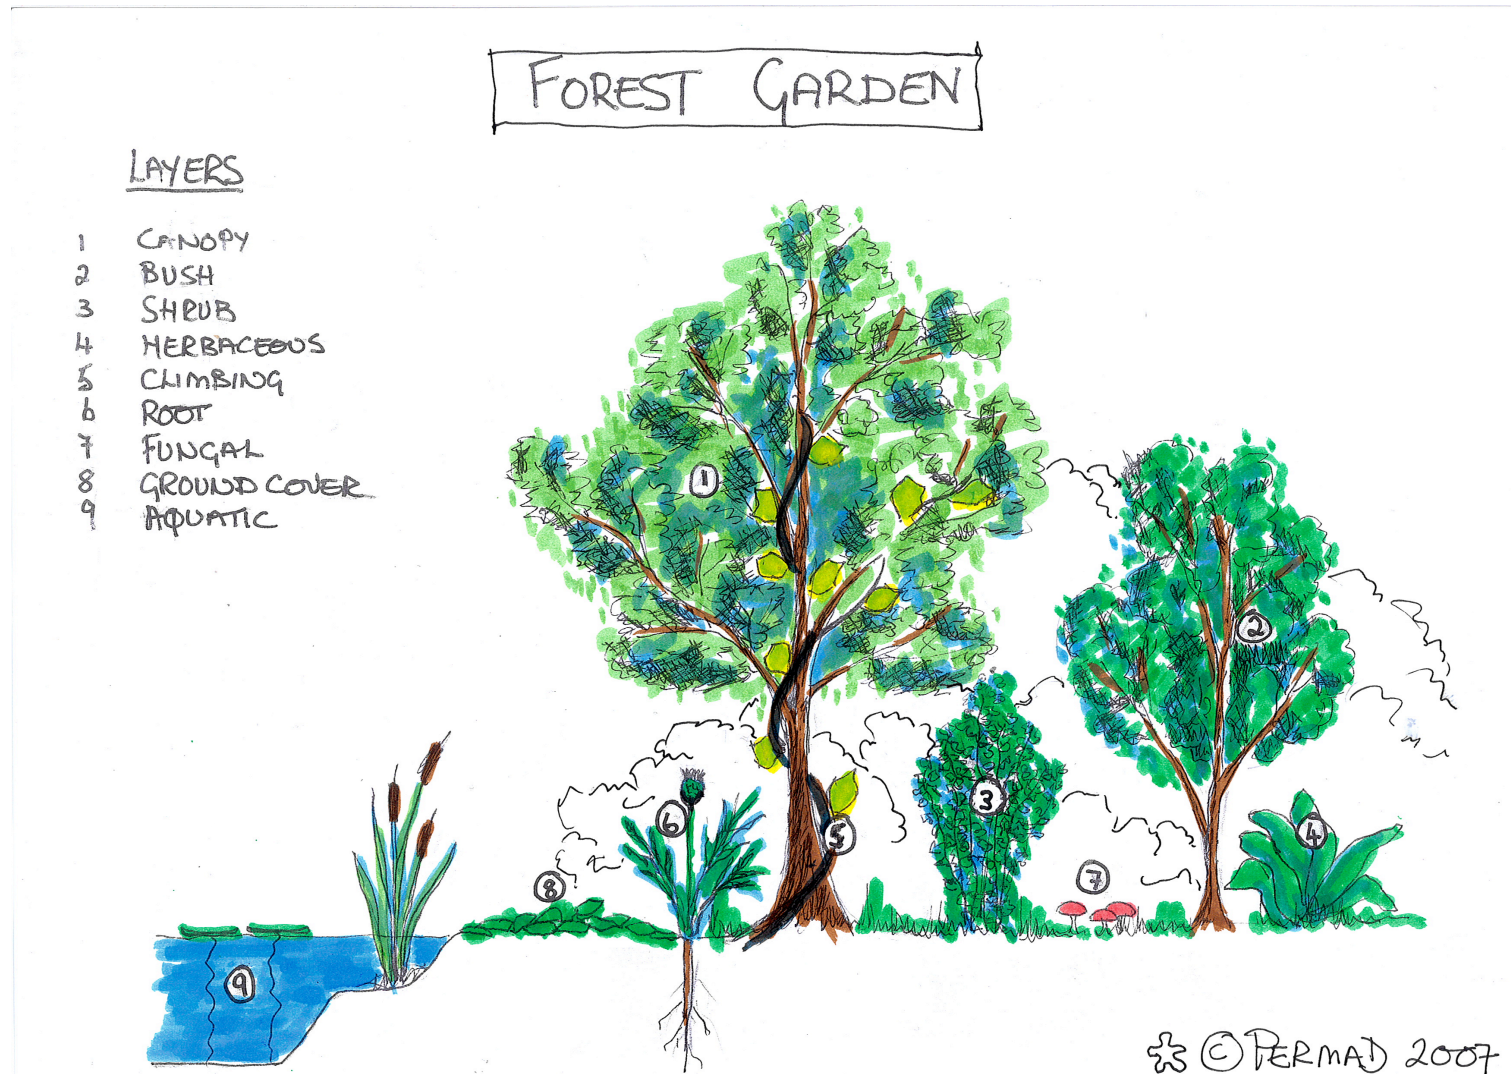 FOREST GARDEN
LAYERS
1 CANOPY
2 BUSH
3 SHRUB
4 HERBACEOUS
5 CLIMBING
6 ROOT
7 FUNGAL
8 GROUND COVER
9 AQUATIC
1
2
3
4
5
6
7
8
9
© PERMAD 2007